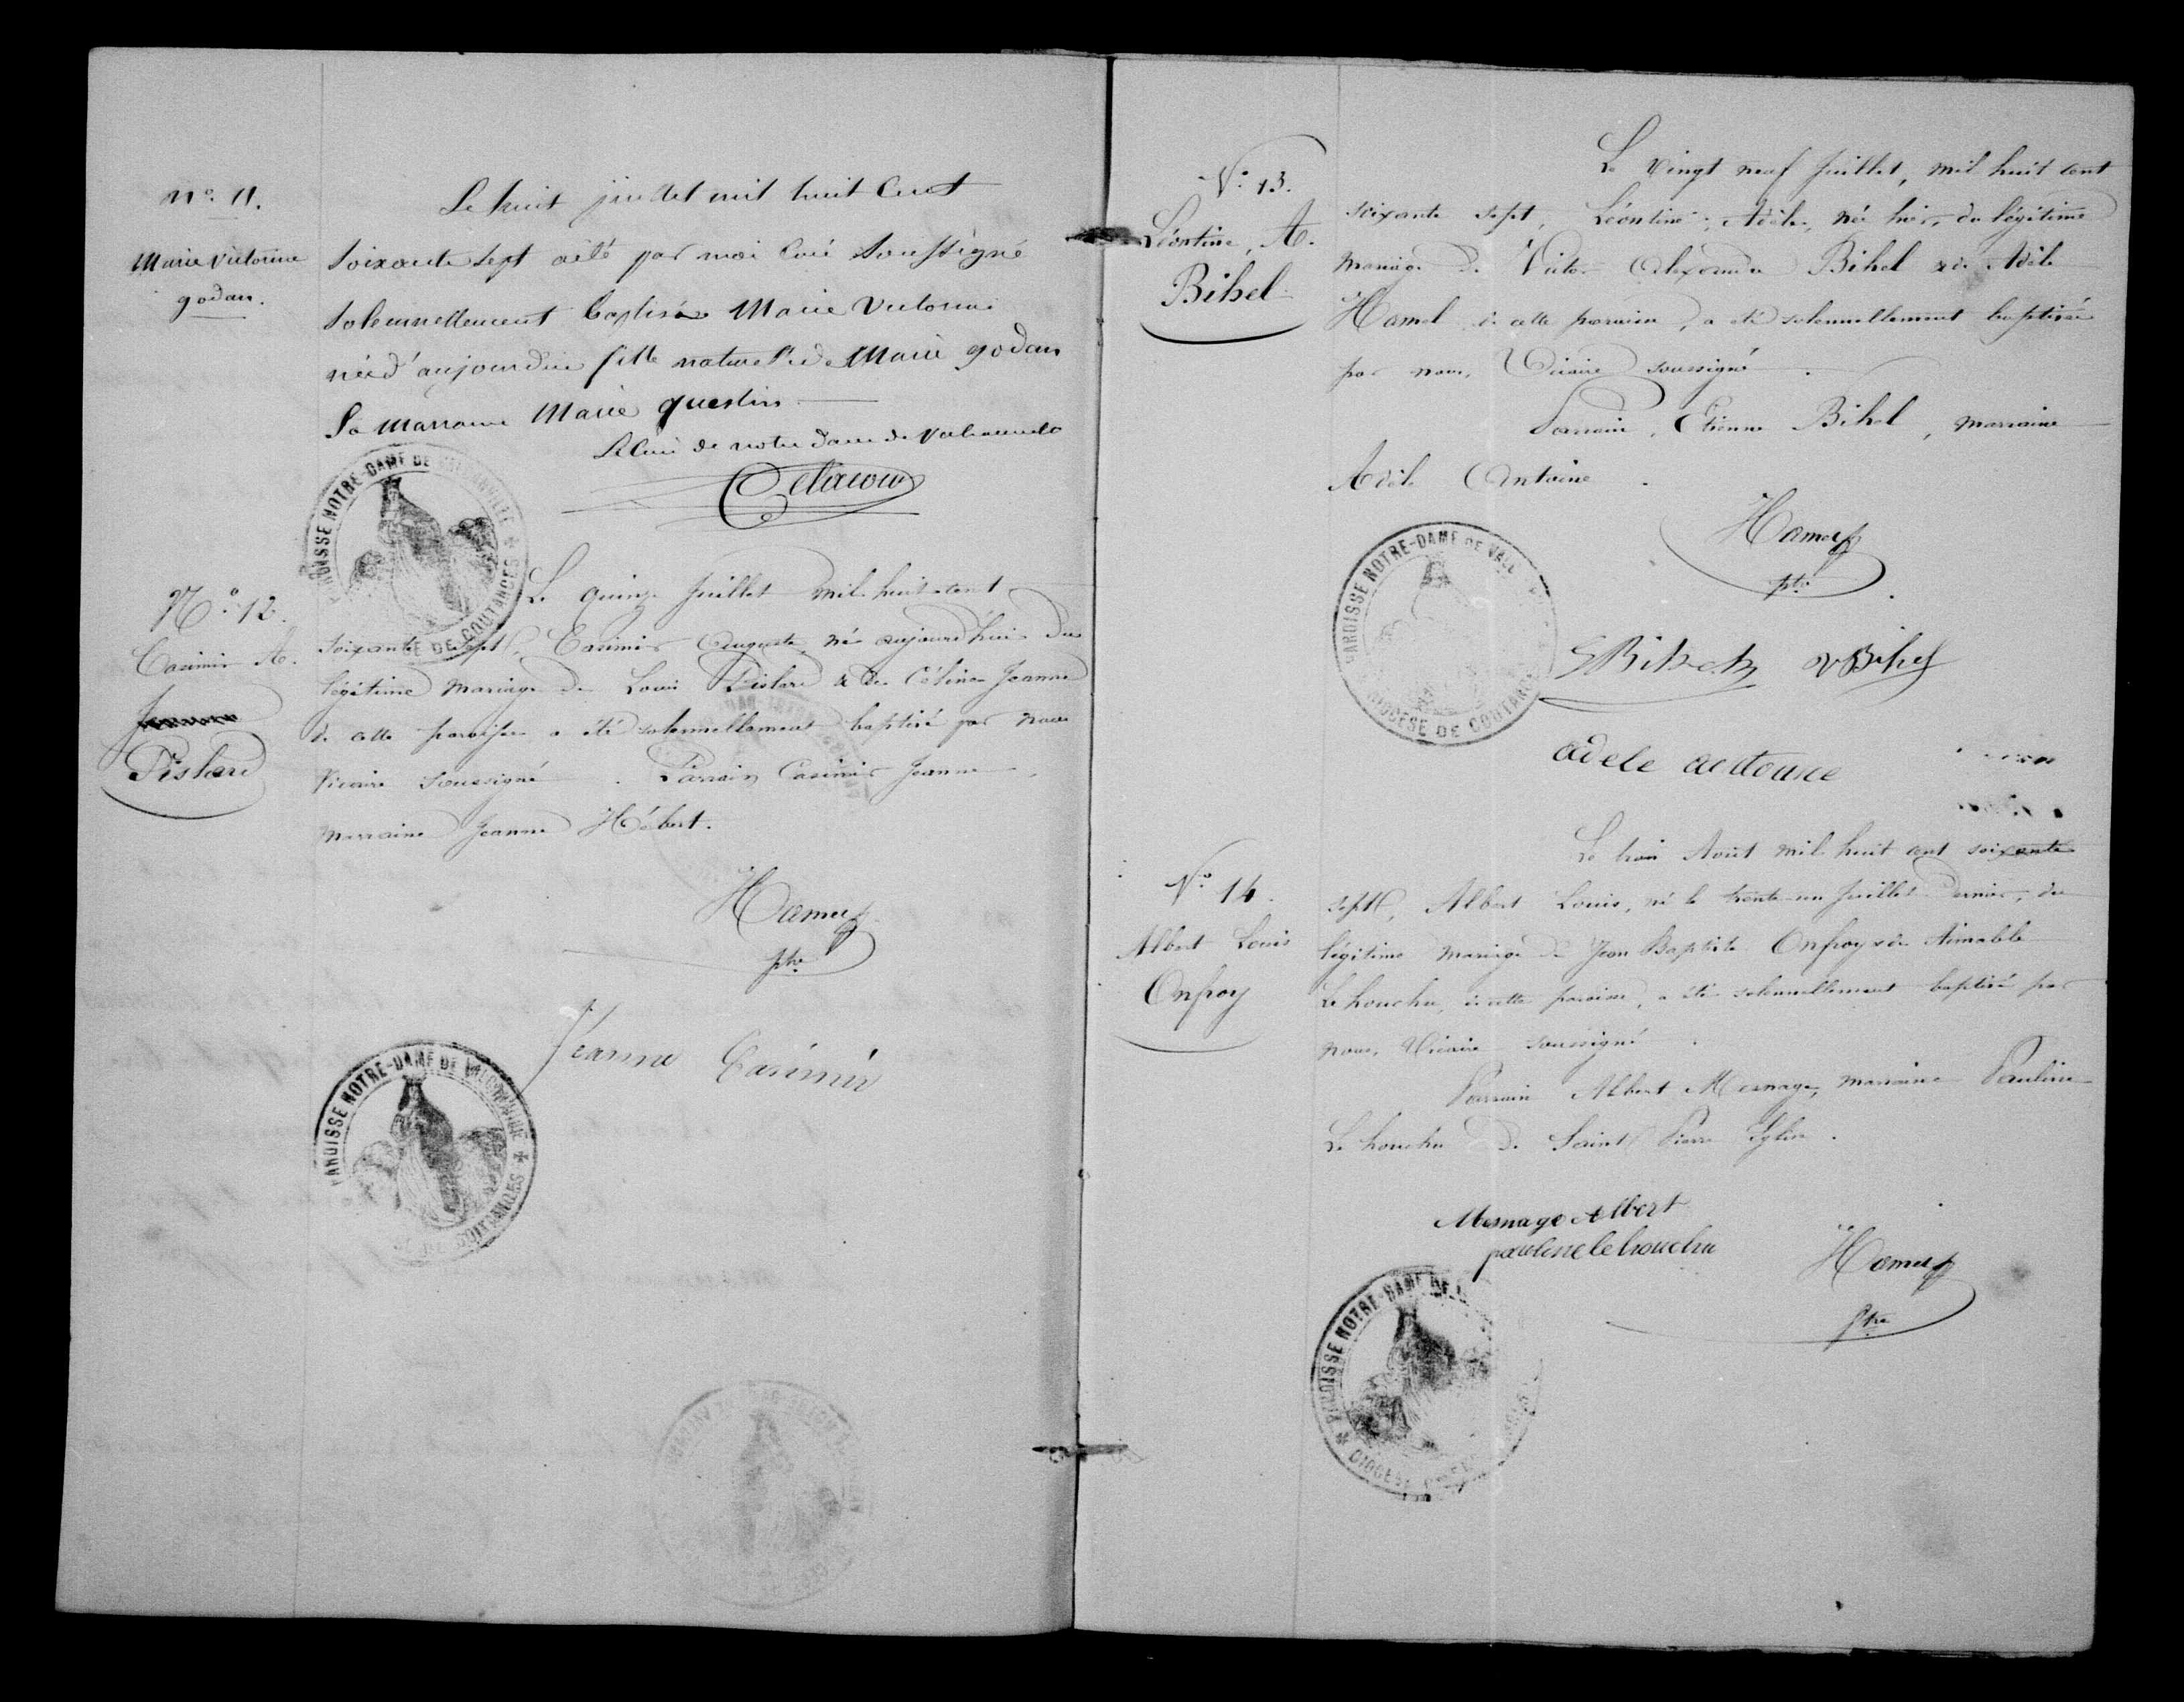 n° 11.
Marie Victorine
godan.
Le huit juillet mil huit Cent
soixante sept a été par moi Curé soussigné
solennellement baptisée Marie Victorine
née d'aujourdui fille naturelle de Marie godan
Sa Marraine Marie questin
Le Curé de notre dame de
N° 12.
Casimir A.
Pislard
Le quinze Juillet mil huit cent
soixante sept, Casimir Auguste, né aujourd'hui du
légitime mariage de Louis Pislard & de Céline Jeanne
de cette paroisse a été solennellement baptisé par nous
Vicaire soussigné. Parrain Casimir Jeanne,
marraine Jeanne Hébert.
Hamel
ptre
Jeanne Casimir
PAROISSE NOTRE-DAME DE
DE COUTANCES
N° 13.
Léontine, A.
Bihel
Le vingt neuf Juillet, mil huit cent
soixante sept, Léontine, Adèle, née hier, du légitime
mariage de Victor Alexandre Bihel & de Adèle
Hamel de cette paroisse, a été solennellement baptisée
par nous, Vicaire soussigné.
Parrain, Etienne Bihel, marraine
Adèle Antoine.
Hamel
ptre
Bihel V Bihel
adele antoine
PAROISSE NOTRE-DAME DE
DIOCESE DE COUTANCES
N° 14.
Albert Louis
Onfroy
Le trois Août mil huit cent soixante
sept, Albert Louis, né le trente-un Juillet dernier, du
légitime mariage de Jean Baptiste Onfroy & de Aimable
Lehouchu, de cette paroisse, a été solennellement baptisé par
nous, Vicaire soussigné.
Parrain Albert Mesnage, marraine Pauline
Lehouchu de Saint Pierre Eglise.
Mesnage Albert
pauline lehouchu
Hamel
ptre
PAROISSE NOTRE-DAME DE
DIOCESE